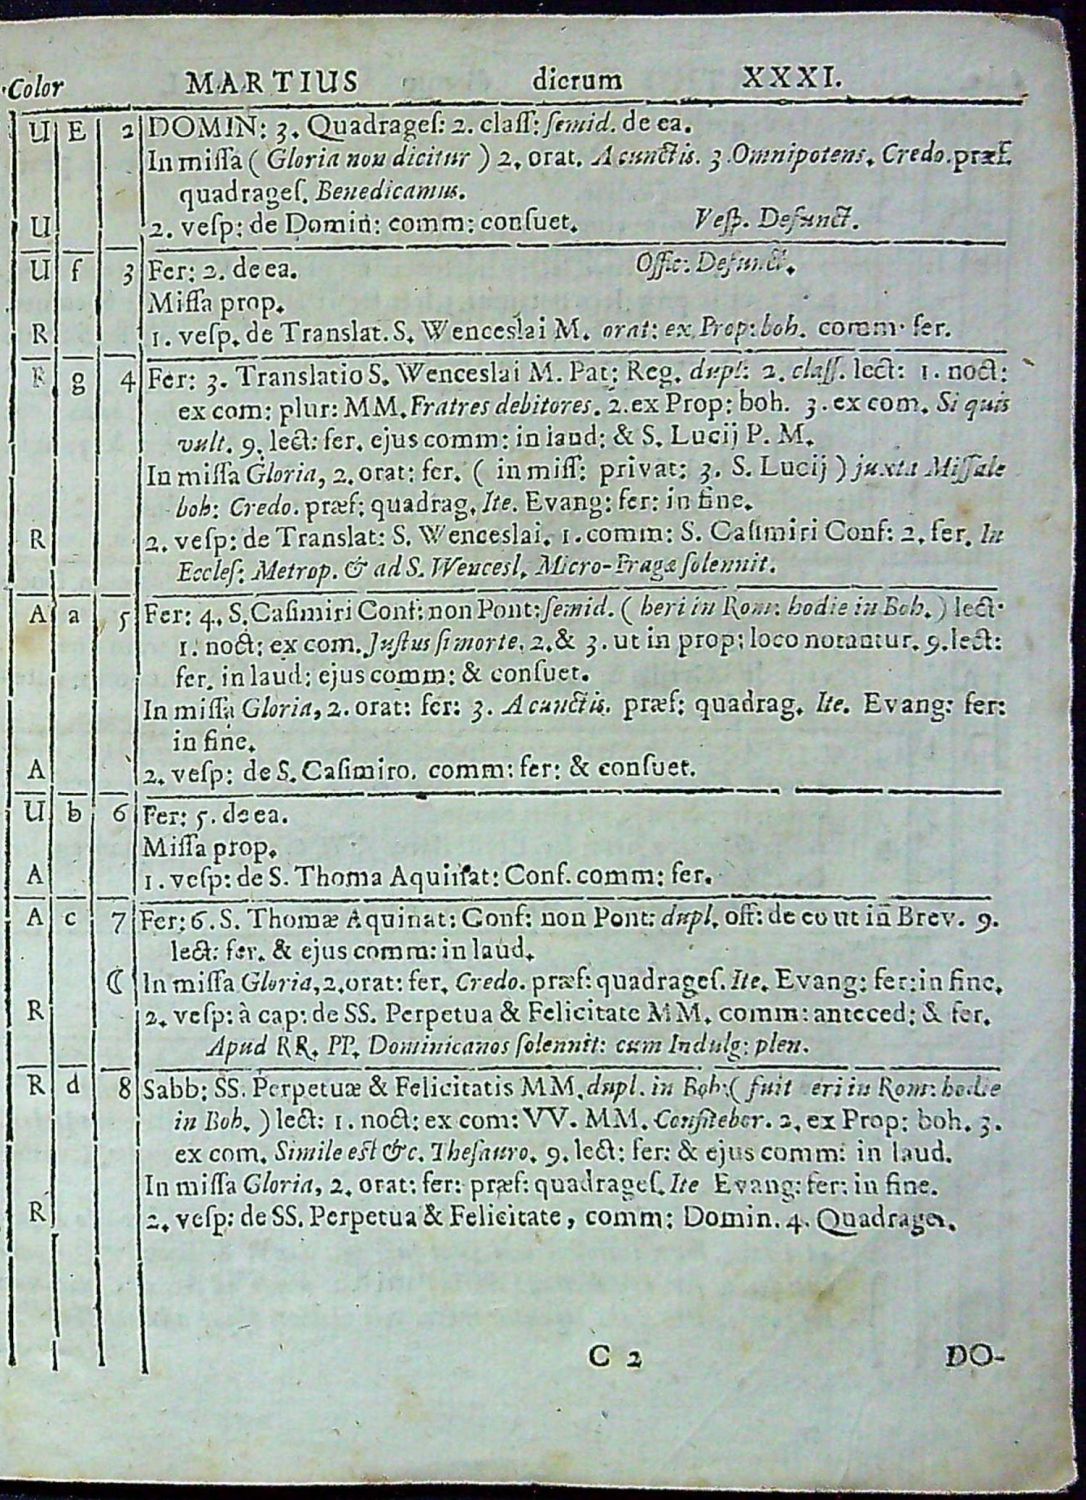 Color MARTIUS dierum XXXI.
U E 2 DOMIN: 3. Quadrageſ: 2. claſſ: ſemid. de ea.
In miſſa ( Gloria non dicitur ) 2. orat. A cunctis. 3. Omnipotens. Credo. præf.
quadrageſ. Benedicamus.
U 2. veſp: de Domin: comm: conſuet. Veſp. Defunct.
U f 3 Fer: 2. de ea. Offic: Defunct.
Miſſa prop.
R 1. veſp. de Translat. S. Wenceslai M. orat: ex Prop: boh. comm. fer.
R g 4 Fer: 3. Translatio S. Wenceslai M. Pat: Reg. dupl: 2. claſſ. lect: 1. noct:
ex com: plur: MM. Fratres debitores. 2. ex Prop: boh. 3. ex com. Si quis
vult. 9. lect: fer. ejus comm: in laud: & S. Lucij P. M.
In miſſa Gloria, 2. orat: fer. ( in miſſ: privat: 3. S. Lucij ) juxta Miſſale
boh: Credo. præf: quadrag. Ite. Evang: fer: in fine.
R 2. veſp: de Translat: S. Wenceslai. 1. comm: S. Caſimiri Conf: 2. fer. In
Eccleſ: Metrop. & ad S. Wenceſl. Micro-Pragæ ſolennit.
A a 5 Fer: 4. S. Caſimiri Conf: non Pont: ſemid. ( heri in Rom: hodie in Boh. ) lect.
1. noct: ex com. Juſtus ſi morte. 2. & 3. ut in prop: loco notantur. 9. lect:
fer. in laud: ejus comm: & conſuet.
In miſſa Gloria, 2. orat: fer: 3. A cunctis. præf: quadrag. Ite. Evang: fer:
in fine.
A 2. veſp: de S. Caſimiro. comm: fer: & conſuet.
U b 6 Fer: 5. de ea.
Miſſa prop.
A 1. veſp: de S. Thoma Aquinat: Conf. comm: fer.
A c 7 Fer: 6. S. Thomæ Aquinat: Conf: non Pont: dupl. off: de eo ut in Brev. 9.
lect: fer. & ejus comm: in laud.
☾ In miſſa Gloria, 2. orat: fer. Credo. præf: quadrageſ. Ite. Evang: fer: in fine.
R 2. veſp: à cap: de SS. Perpetua & Felicitate MM. comm: anteced: & fer.
Apud RR. PP. Dominicanos ſolennit: cum Indulg: plen.
R d 8 Sabb: SS. Perpetuæ & Felicitatis MM. dupl. in Boh: ( fuit eri in Rom: hodie
in Boh. ) lect: 1. noct: ex com: VV. MM. Confitebor. 2. ex Prop: boh. 3.
ex com. Simile eſt &c. Theſauro. 9. lect: fer: & ejus comm: in laud.
In miſſa Gloria, 2. orat: fer: præf: quadrageſ. Ite Evang: fer: in fine.
R 2. veſp: de SS. Perpetua & Felicitate, comm: Domin. 4. Quadrageſ.
C 2 DO-